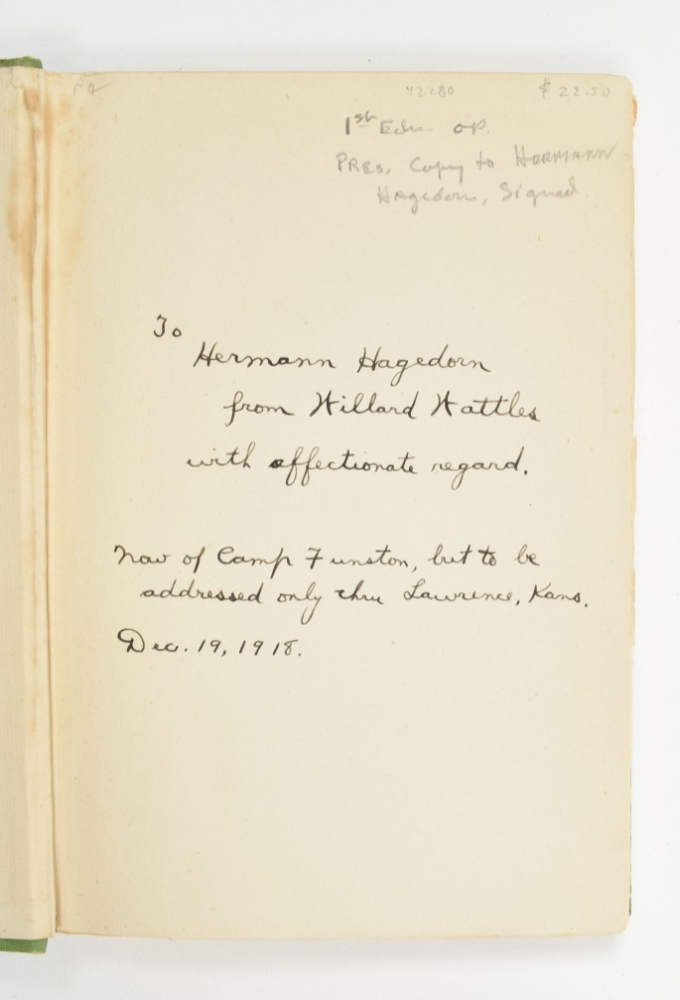 42280 $ 22.50
1st Edn OP.
PRES. Copy to HERMANN
Hagedorn, Signed
To
Hermann Hagedorn
from Willard Wattles
with affectionate regard.
Now of Camp Funston, but to be
addressed only thru Lawrence, Kans.
Dec. 19, 1918.